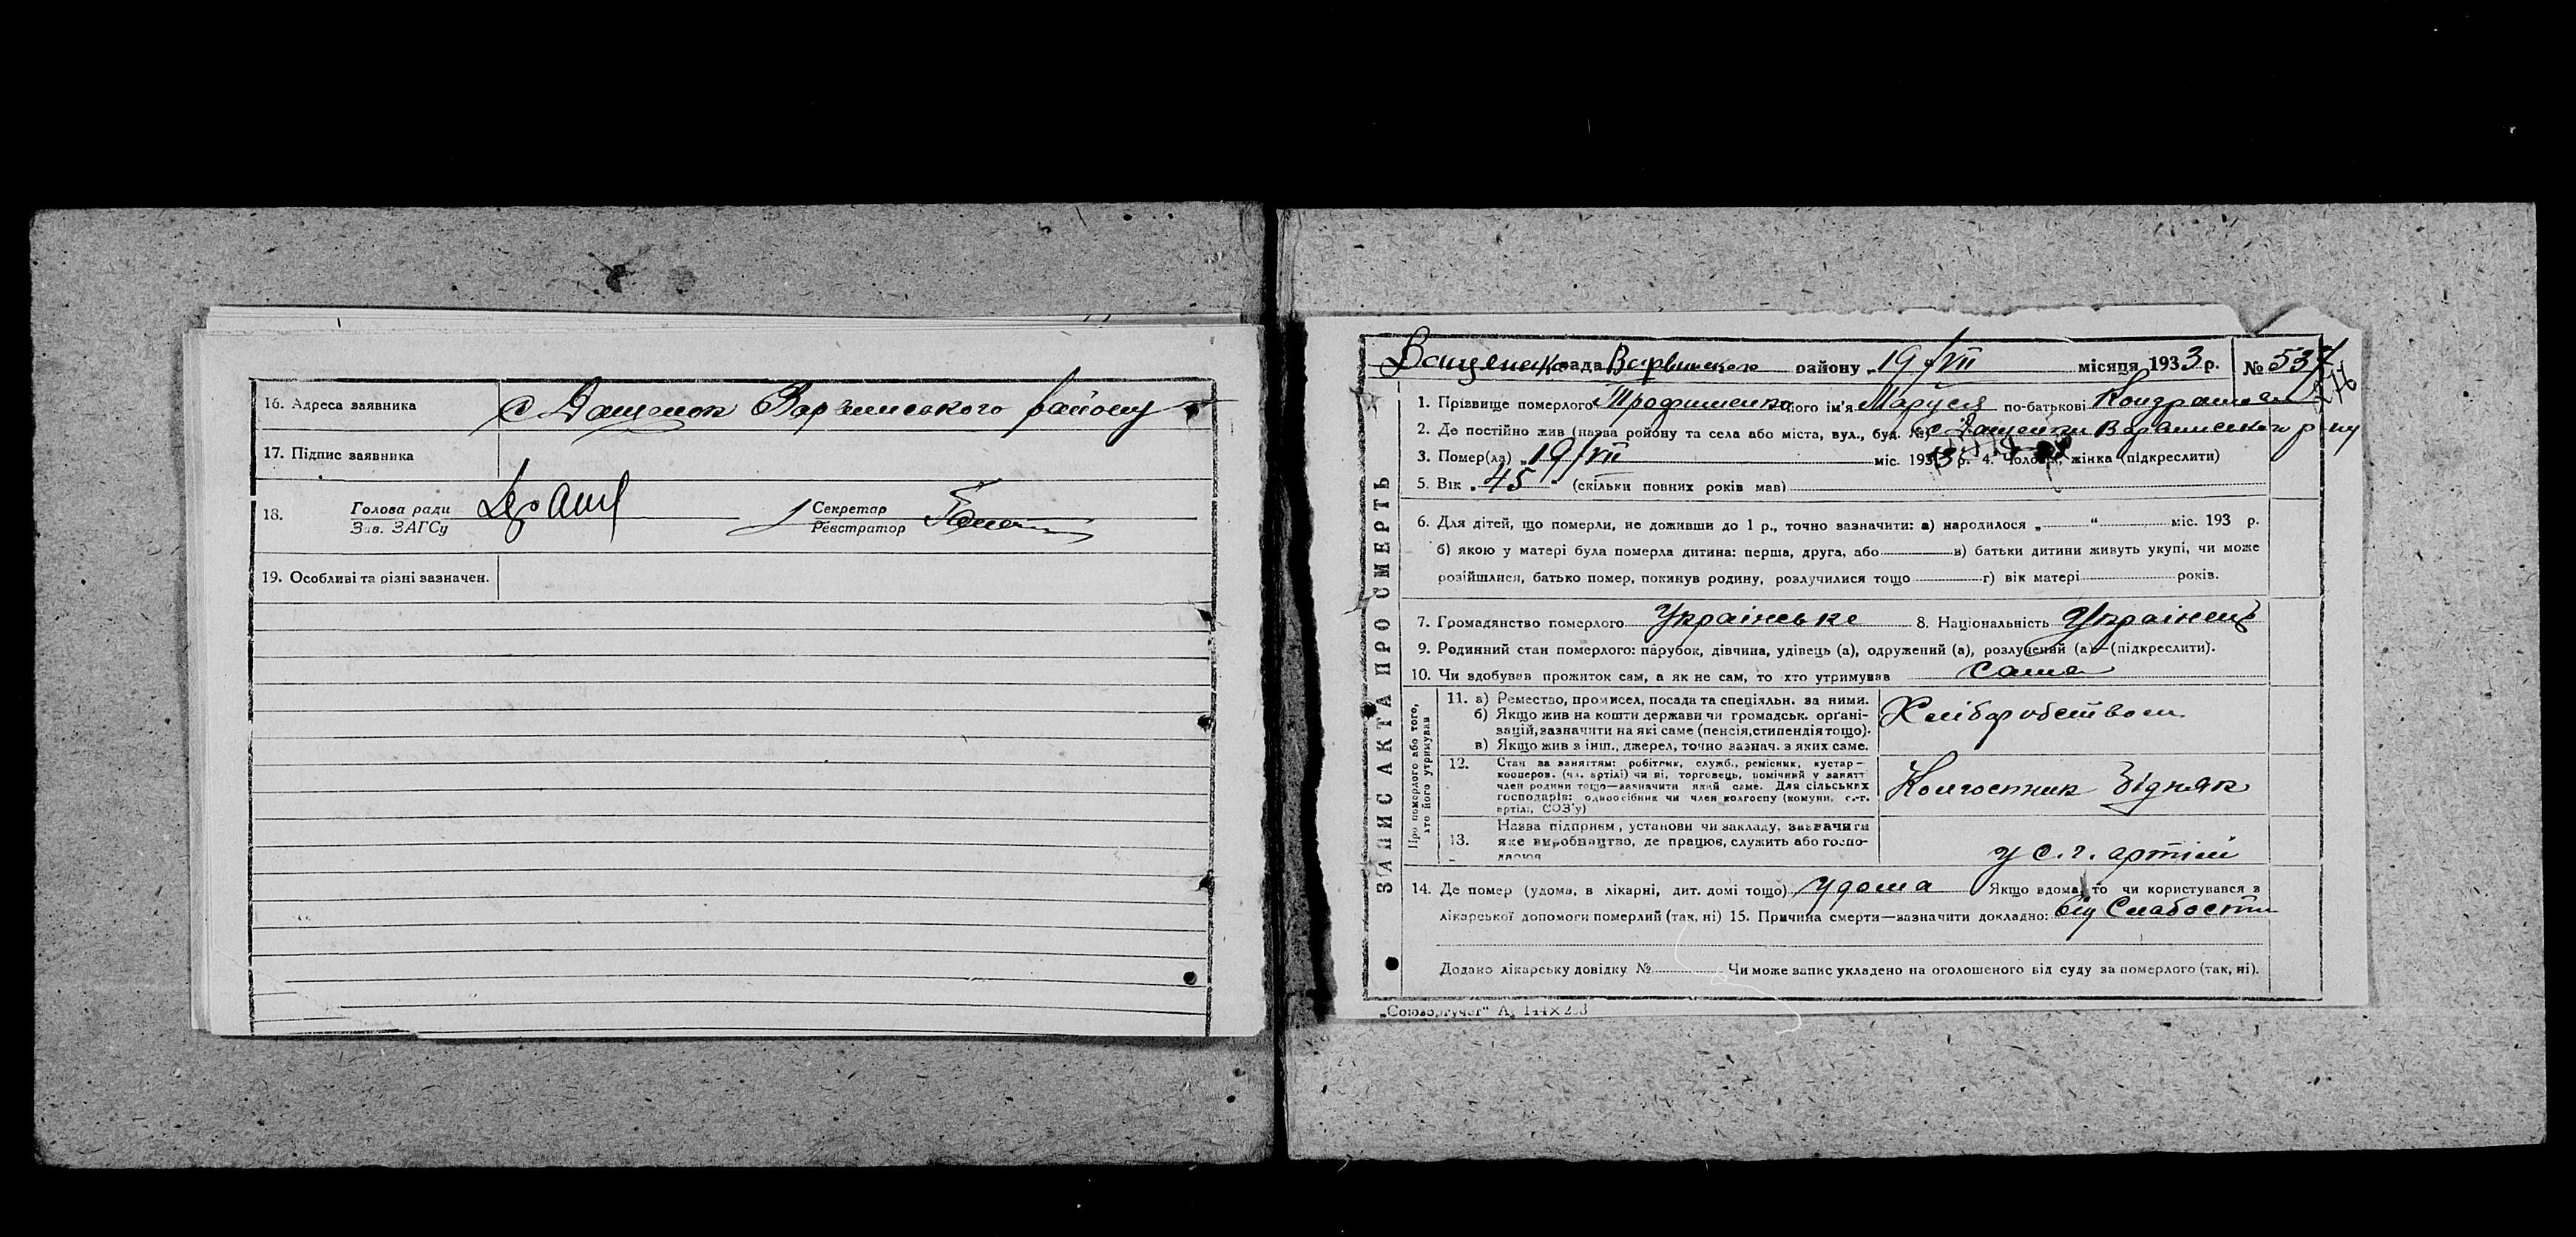 16. Адреса заявника с Дащенок Варвинського району
17. Підпис заявника
18. Голова ради Секретар
Зав. ЗАГСу Реєстратор
19. Особливі та різні зазначен.
Дащенська рада Варвинского району „ 19 „ VII місяця 1933 р. № 53
ЗАПИС АКТА ПРО СМЕРТЬ
1. Прізвище померлого Трофименко його ім'я Маруся по-батькові
2. Де постійно жив (назва району та села або міста, вул., буд. №) с Дащенки Варвинського р ну
3. Помер(ла) „ 19/VII міс. 1933 р. 4. Чоловік, жінка (підкреслити)
5. Вік „ 45 " (скільки повних років мав)
6. Для дітей, що померли, не доживши до 1 р., точно зазначити: а) народилося „ “ міс. 193 р.
б) якою у матері була померла дитина: перша, друга, або в) батьки дитини живуть укупі, чи може
розійшлися, батько помер, покинув родину, розлучилися тощо г) вік матері років.
7. Громадянство померлого Українське 8. Національність Українець
9. Родинний стан померлого: парубок, дівчина, удівець (а), одружений (а), розлучений (а)—(підкреслити).
10. Чи здобував прожиток сам, а як не сам, то хто утримував сама
Про померлого або того,
хто його утримував
11. а) Ремество, промисел, посада та спеціяльн. за ними.
б) Якщо жив на кошти держави чи громадськ. орґані-
зацій, зазначити на які саме (пенсія, стипендія тощо).
в) Якщо жив з інш., джерел, точно зазнач. з яких саме.
Хліборобством
12. Стан за заняттям: робітник, служб., ремісник, кустар—
кооперов. (чл. артілі) чи ні, торговець, помічний у занятт
член родини тощо—зазначити який саме. Для сільських
господарів: одноосібник чи член колгоспу (комуни, с.-г.
артілі, СОЗ'у)
Колгоспник Бідняк
13. Назва підприєм, установи чи закладу, зазначити
яке виробництво, де працює, служить або госпо-
дарює
у с. г. артілі
14. Де помер (удома, в лікарні, дит. домі тощо) удома Якщо вдома, то чи користувався з
лікарської допомоги померлий (так, ні) 15. Причина смерти—зазначити докладно: від Слабости
Додано лікарську довідку № Чи може запис укладено на оголошеного від суду за померлого (так, ні).
„Союзоргучет“